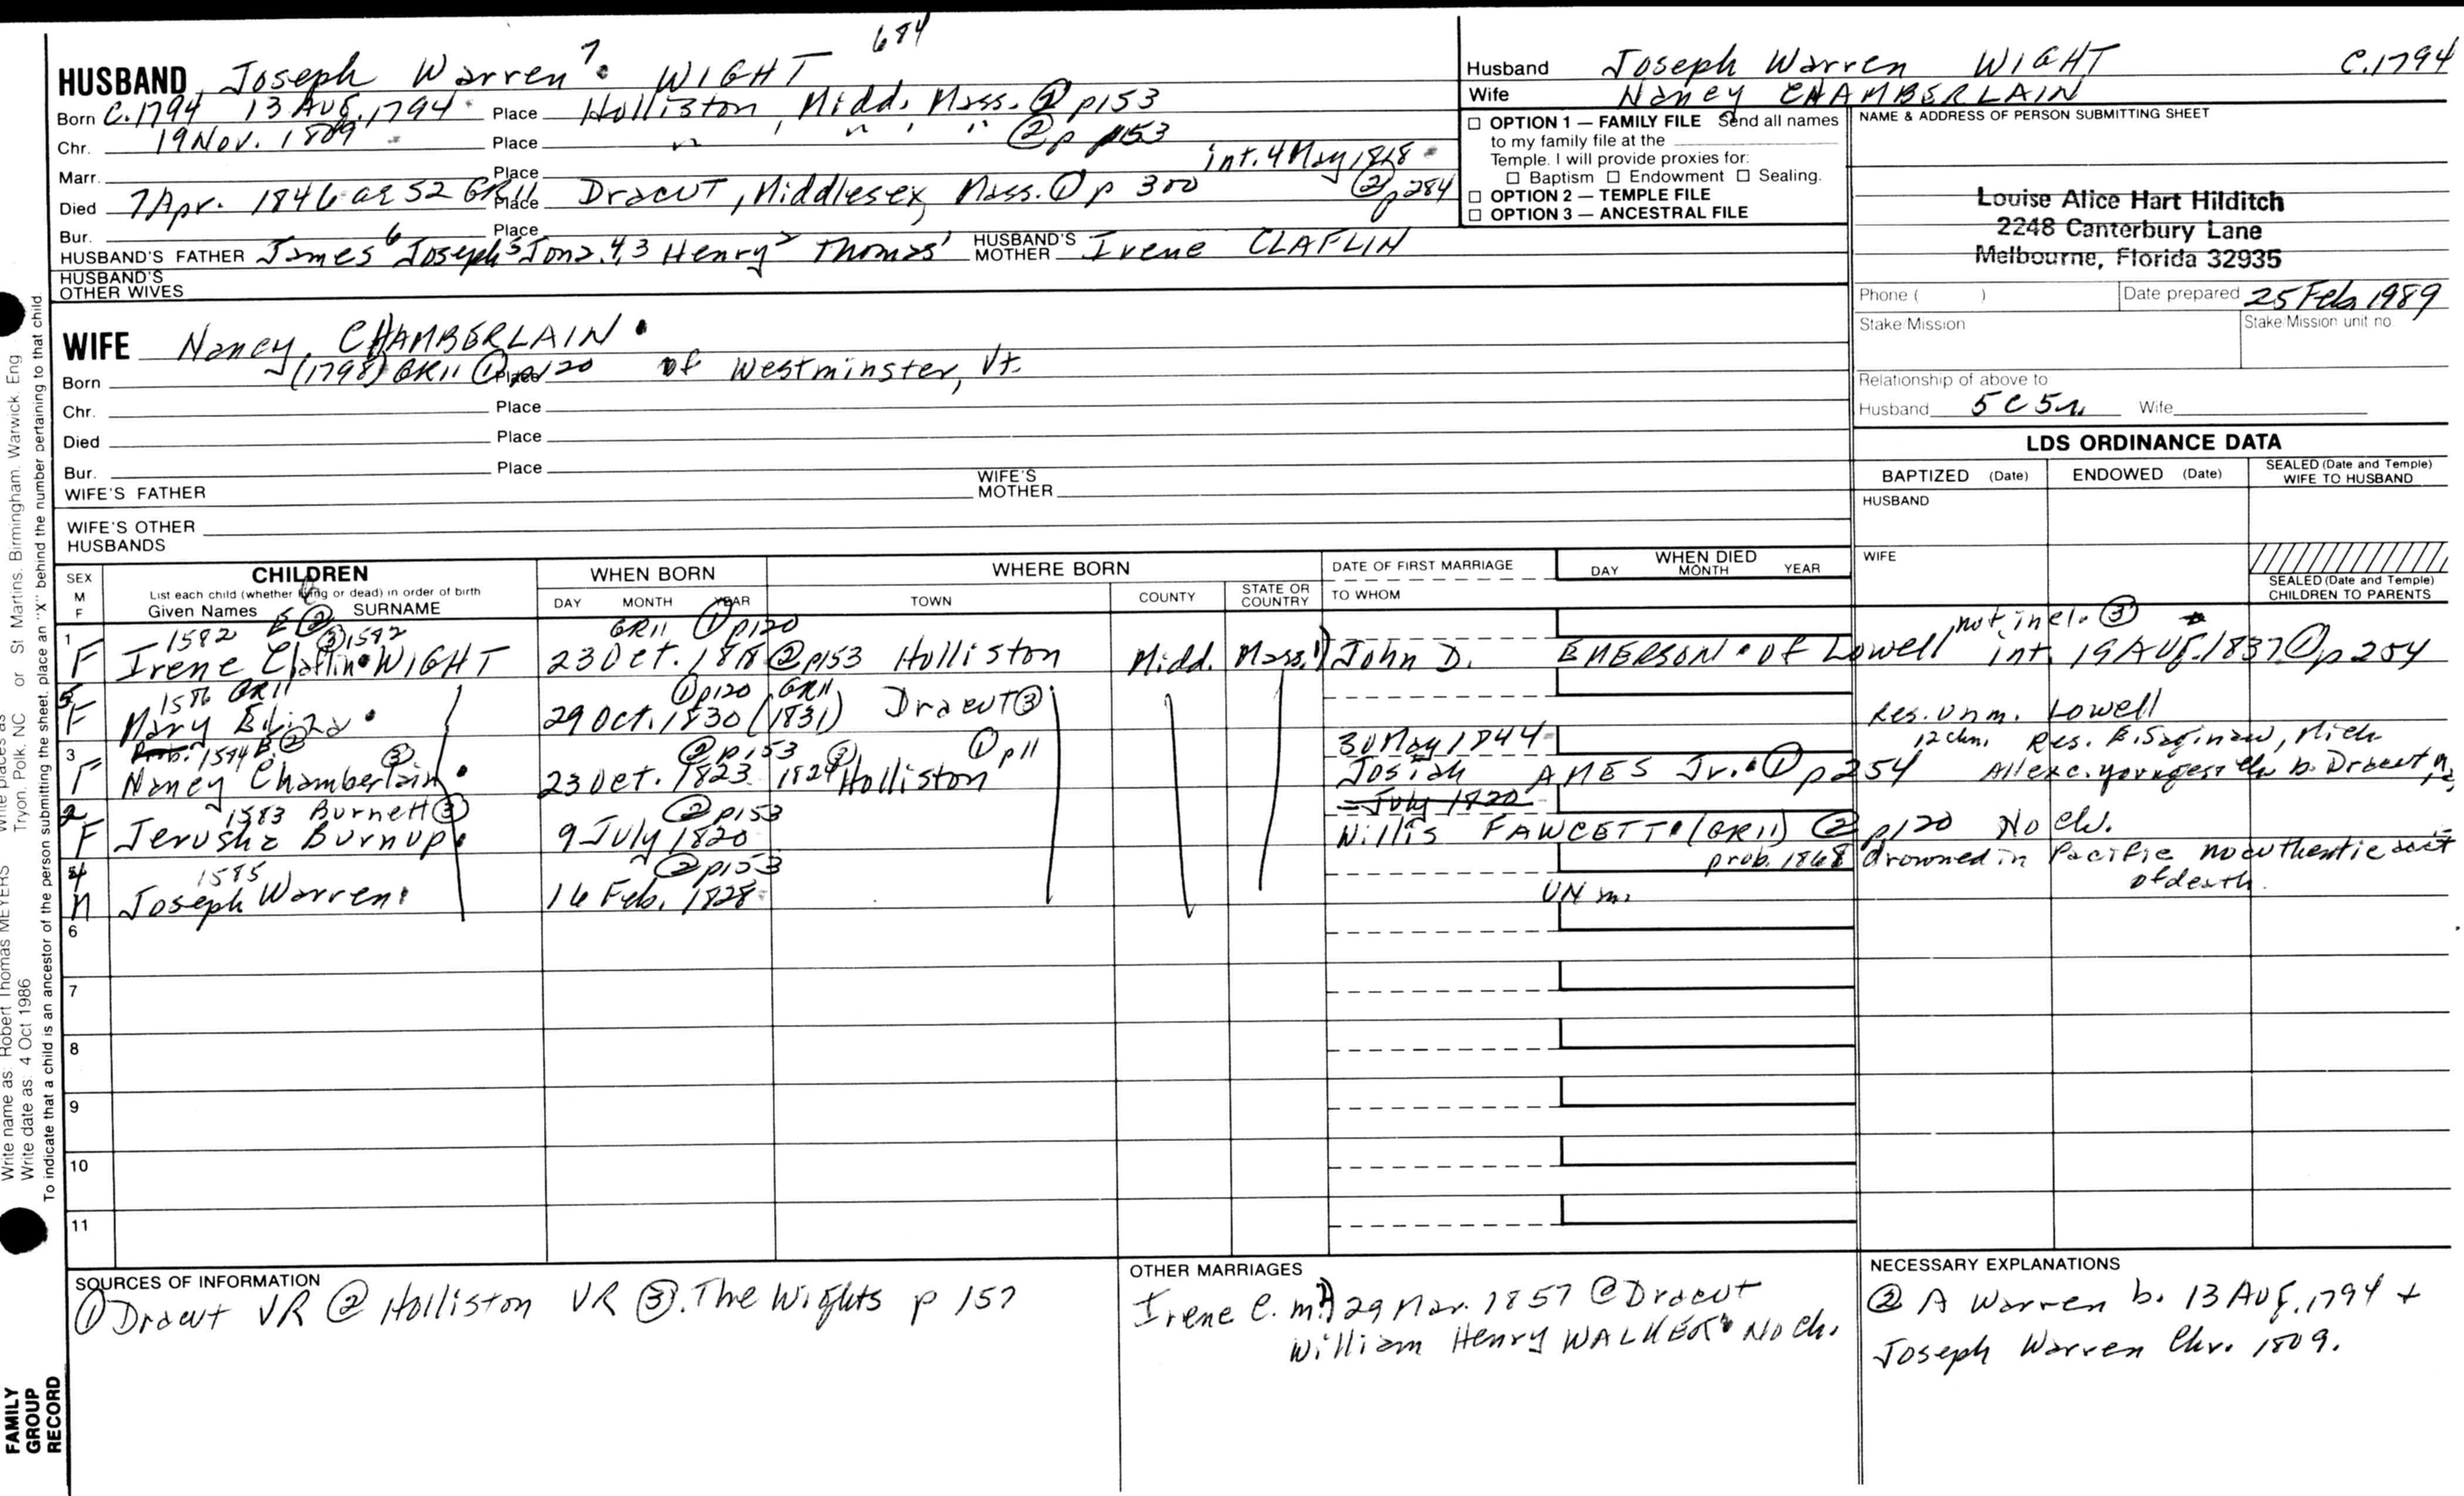 684
HUSBAND Joseph Warren 7 WIGHT
Born C.1794 13 Aug. 1794 Place Holliston, Midd. Mass. ② p153
Chr. 19 Nov. 1809 Place " , " , " ② p 153
Marr. Place int. 4 May 1818
② p 284
Died 7 Apr. 1846 ae 52 GR11 Place Dracut, Middlesex, Mass. ① p 300
Bur. Place
HUSBAND'S FATHER James 6 Joseph 5 Jona. 4,3 Henry 2 Thomas 1 HUSBAND'S MOTHER Irene CLAFLIN
HUSBAND'S OTHER WIVES
WIFE Nancy CHAMBERLAIN
Born (1798) GR11 ① p120 Place of Westminster, Vt.
Chr. Place
Died Place
Bur. Place
WIFE'S FATHER WIFE'S MOTHER
WIFE'S OTHER HUSBANDS
Husband Joseph Warren WIGHT C.1794
Wife Nancy CHAMBERLAIN
☐ OPTION 1 — FAMILY FILE Send all names
to my family file at the
Temple. I will provide proxies for:
☐ Baptism ☐ Endowment ☐ Sealing.
☐ OPTION 2 — TEMPLE FILE
☐ OPTION 3 — ANCESTRAL FILE
NAME & ADDRESS OF PERSON SUBMITTING SHEET
Louise Alice Hart Hilditch
2248 Canterbury Lane
Melbourne, Florida 32935
Phone ( ) Date prepared 25 Feb 1989
Stake/Mission Stake/Mission unit no.
Relationship of above to
Husband 5C5r. Wife
LDS ORDINANCE DATA
BAPTIZED (Date) ENDOWED (Date) SEALED (Date and Temple) WIFE TO HUSBAND
HUSBAND
WIFE
SEALED (Date and Temple) CHILDREN TO PARENTS
SEX M F
CHILDREN
List each child (whether living or dead) in order of birth
Given Names SURNAME
WHEN BORN
DAY MONTH YEAR
WHERE BORN
TOWN COUNTY STATE OR COUNTRY
DATE OF FIRST MARRIAGE
TO WHOM
WHEN DIED
DAY MONTH YEAR
1 1582 E ② ③ 1582 GR11 ① p120 not incl. ③
F Irene Claflin WIGHT 23 Oct. 1818 ② p153 Holliston Midd. Mass. 1) John D. EMERSON of Lowell int. 19 Aug. 1837 ① p 254
5 1586 GR11 ① p120 GR11
F Mary Eliza 29 Oct. 1830 (1831) Dracut ③ Res. unm. Lowell
3 Prob. 1584 B. ② ③ ② p153 ③ ① p11 30 May 1844 12 chn. Res. E. Saginaw, Mich
F Nancy Chamberlain 23 Oct. 1823 1824 Holliston Josiah AMES Jr. ① p 254 All exc. youngest ch. b. Dracut
2 1583 Burnett ③ ② p153 July 1820
F Jerusha Burnup 9 July 1820 Willis FAWCETT (GR11) ② p120 No ch.
4 1585 ② p153 prob. 1868 drowned in Pacific no authentic acct of death.
M Joseph Warren 16 Feb. 1828 UN m.
6
7
8
9
10
11
SOURCES OF INFORMATION
① Dracut VR ② Holliston VR ③ The Wights p 157
OTHER MARRIAGES
Irene C. m. 2) 29 Mar. 1857 @ Dracut
William Henry WALKER No ch.
NECESSARY EXPLANATIONS
② A Warren b. 13 Aug. 1794 +
Joseph Warren Chr. 1809.
or St Martins, Birmingham, Warwick, Eng
Write places as Tryon, Polk, NC
Write name as: Robert Thomas MEYERS
Write date as: 4 Oct 1986
To indicate that a child is an ancestor of the person submitting the sheet, place an "X" behind the number pertaining to that child.
FAMILY
GROUP
RECORD